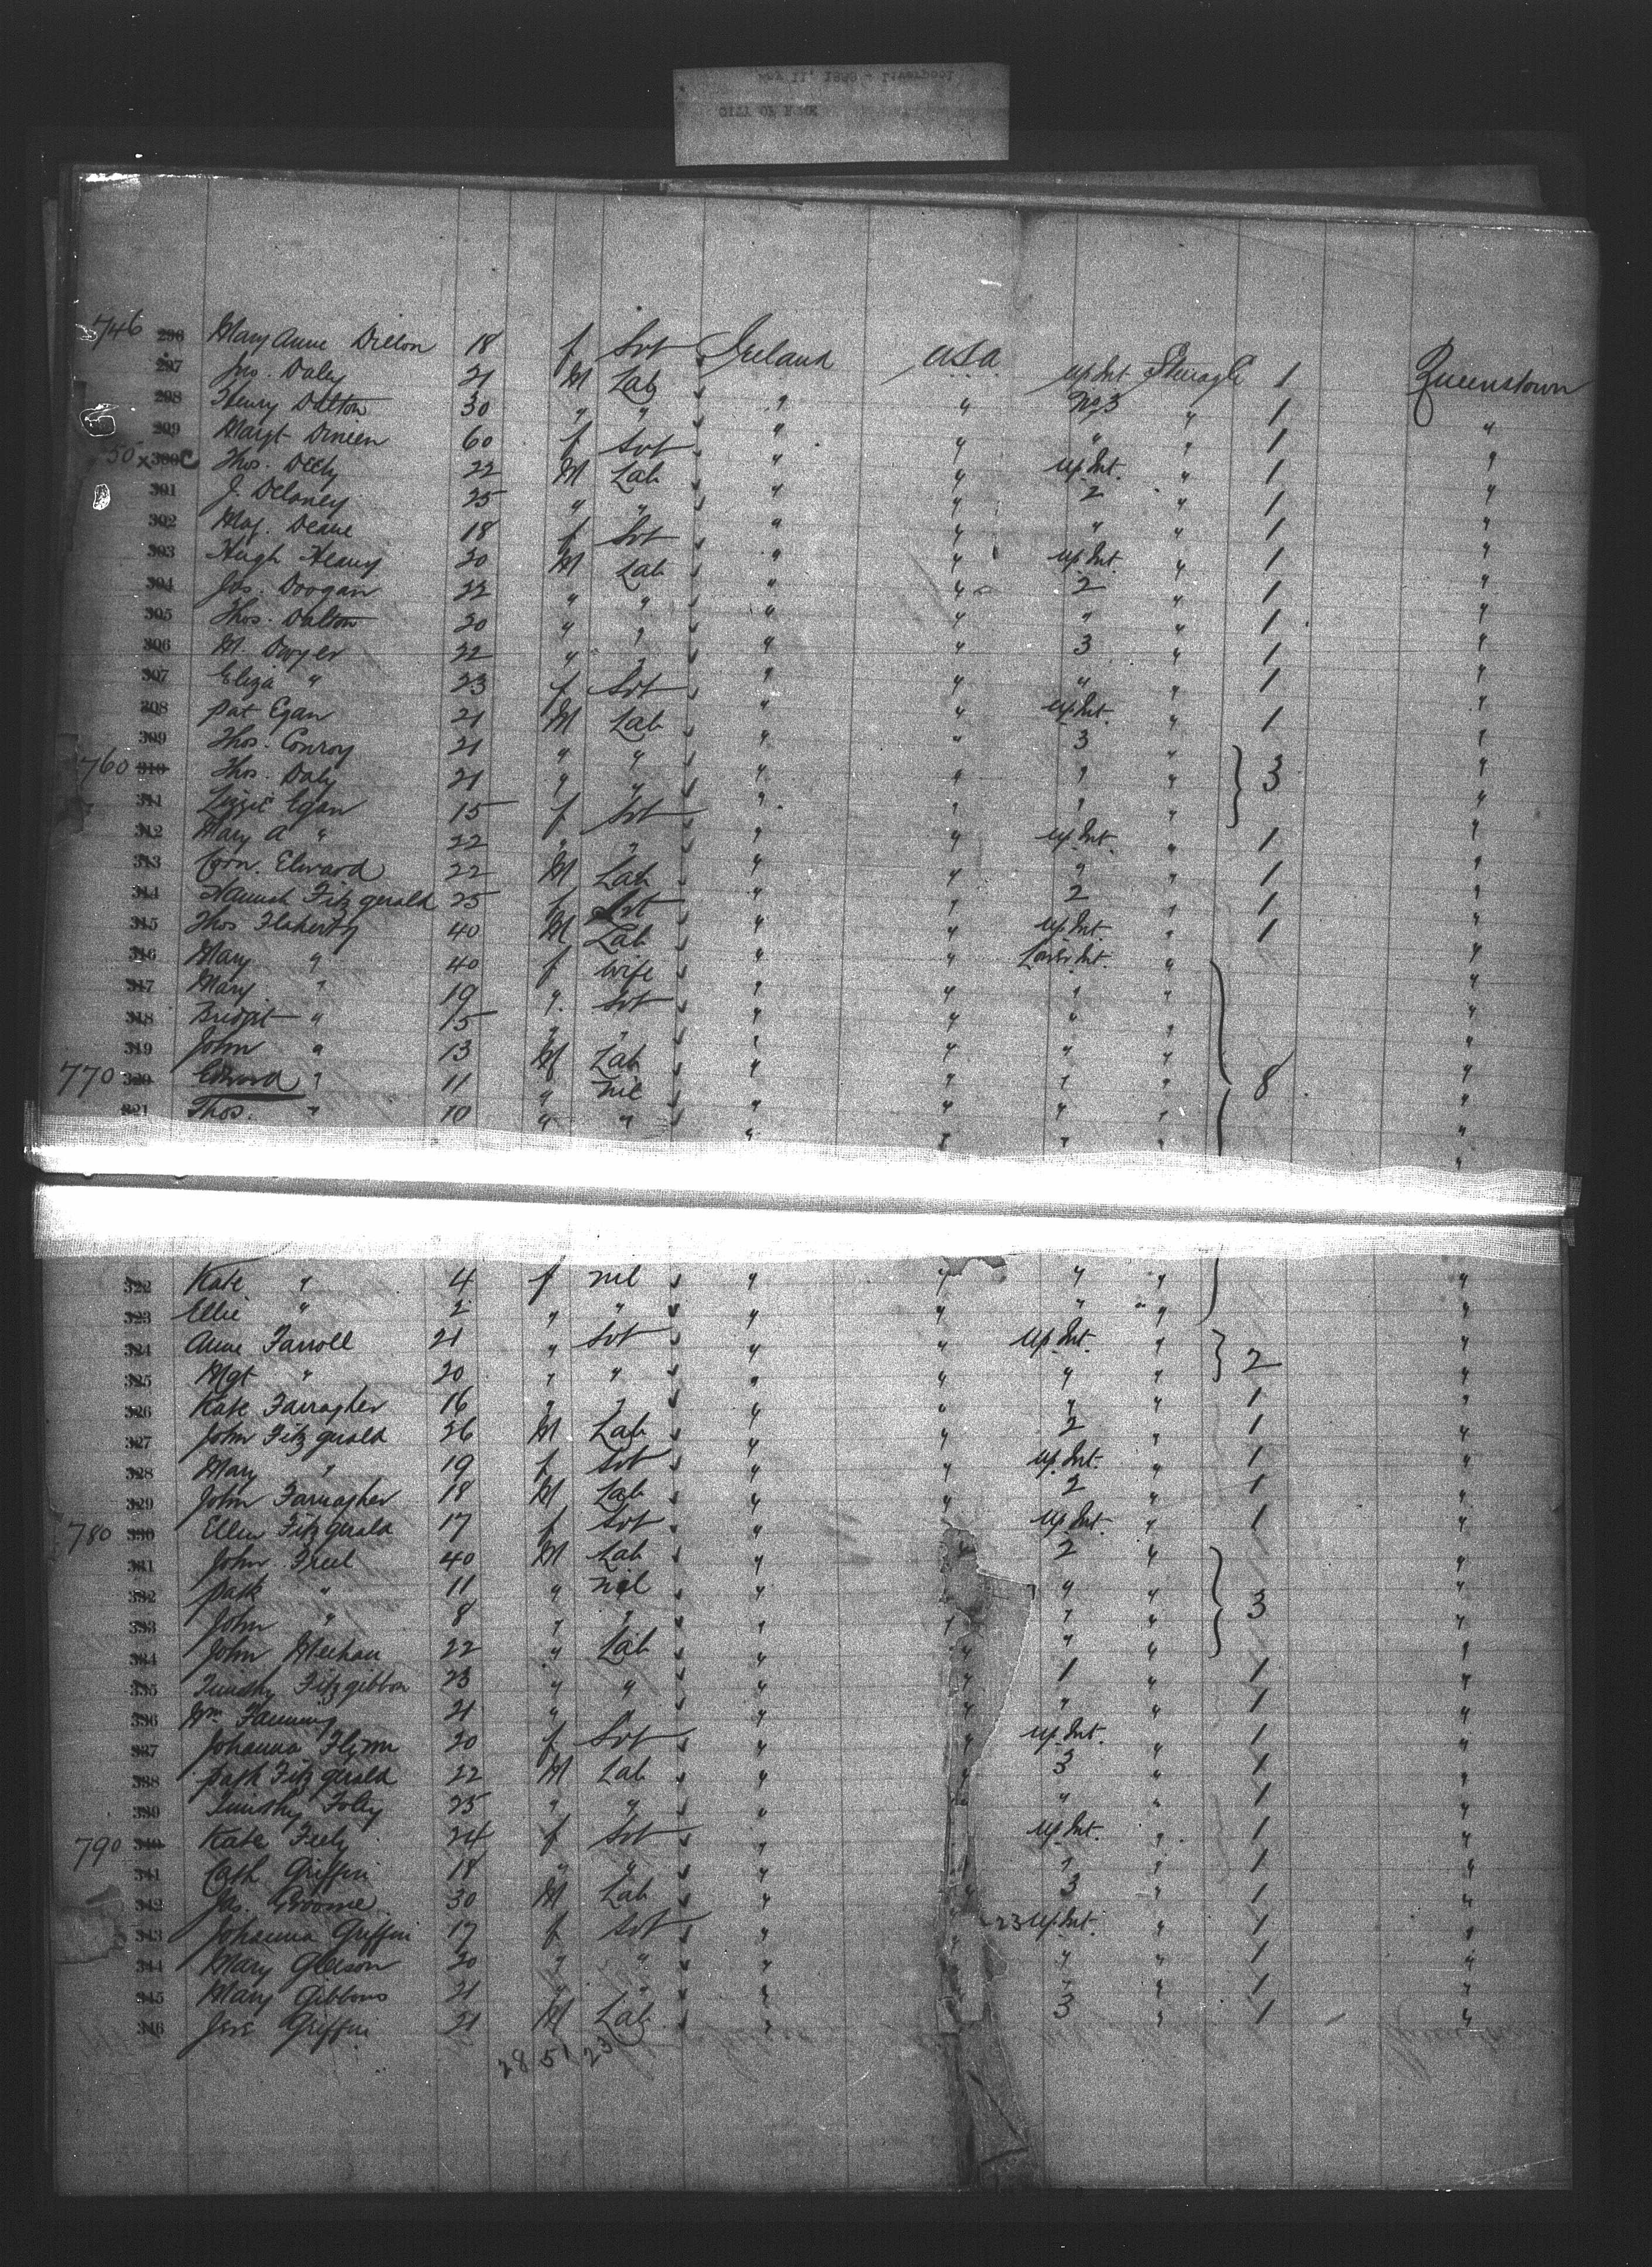 CITY OF ROME
746 296 Mary Anne Dillon 18 f Svt Ireland U.S.A. Up. Int. Steerage 1 Queenstown
297 Jno. Daly 21 M Lab " " No 3 " 1 "
298 Henry Dalton 30 " " " " " " 1 "
299 Margt Dineen 60 f Svt " " Up. Int. " 1 "
50 x 300 C Thos. Deely 22 M Lab " " 2 " 1 "
301 J. Delaney 25 " " " " " " 1 "
302 Mag. Deane 18 f Svt " " Up. Int. " 1 "
303 Hugh 20 M Lab " " 2 " 1 "
304 Jas. Doogan 22 " " " " " " 1 "
305 Thos. Dalton 20 " " " " 3 " 1 "
306 M. Dwyer 22 " " " " " " 1 "
307 Eliza " 23 f Svt " " Up. Int. " 1 "
308 Pat Egan 21 M Lab " " 3 " "
309 Thos. Conroy 21 " " " " " " 3 "
760 310 Thos. Daly 21 " " " " " " "
311 Lizzie Egan 15 f Svt " " Up. Int. " 1 "
312 Mary A " 22 " " " " " " 1 "
313 Corn. Elward 22 M Lab " " 2 " 1 "
314 Hannah Fitzgerald 25 f Svt " " Up. Int. " 1 "
315 Thos Flaherty 40 M Lab " " Lower Int. " "
316 Mary " 40 f Wife " " " " "
317 Mary " 19 " Svt " " " " "
318 Bridget " 15 " " " " " " "
319 John " 13 M Lab " " " " 8 "
770 320 Edward " 11 " nil " " " " "
321 Thos. " 10 " " " " " " "
322 Kate " 4 f nil " " " " "
323 Ellie " 2 " " " " " " "
324 Anne Farroll 21 " Svt " " Up. Int. " 2 "
325 Mgt " 20 " " " " " " "
326 Kate Farragher 16 " " " " " " 1 "
327 John Fitzgerald 26 M Lab " " 2 " 1 "
328 Mary " 19 f Svt " " Up. Int. " 1 "
329 John Farragher 18 M Lab " " 2 " 1 "
780 330 Ellen Fitzgerald 17 f Svt " " Up. Int. " 1 "
331 John Freel 40 M Lab " " 2 " "
332 Patk " 11 " nil " " " " 3 "
333 John " 8 " " " " " " "
334 John Meehan 22 " Lab " " " " "
335 Timothy Fitzgibbon 23 " " " " 1 " 1 "
336 Wm. Fanning 21 " " " " " " 1 "
337 Johanna Flynn 20 f Svt " " Up. Int. " 1 "
338 Patk Fitzgerald 22 M Lab " " 3 " 1 "
339 Timothy Foley 25 " " " " " " 1 "
790 340 Kate Feely 24 f Svt " " Up. Int. " 1 "
341 Cath Griffin 18 " " " " " " 1 "
342 Jas. Groome 30 M Lab " " 3 " 1 "
343 Johanna Griffin 17 f Svt " " 23 Up. Int. " 1 "
344 Mary Gleeson 20 " " " " " " 1 "
345 Mary Gibbons 21 " " " " " " 1 "
346 Jere Griffin 21 M Lab " " 3 " 1 "
28 51 23